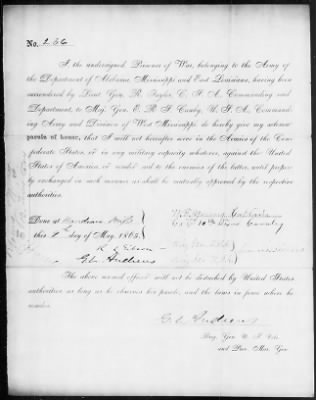 No. 266
I the undersigned Prisoner of War, belonging to the Army of
the Department of Alabama, Mississippi and East Louisiana, having been
surrendered by Lieut. Gen. R. Taylor, C. S. A., Commanding said
Department, to Maj. Gen. E. R. S. Canby, U. S. A., Command-
ing Army and Division of West Mississippi, do hereby give my solemn
parole of honor, that I will not hereafter serve in the Armies of the Con-
federate States, or in any military capacity whatever, against the United
States of America, or render aid to the enemies of the latter, until proper-
ly exchanged in such manner as shall be mutually approved by the respective
authorities.
Done at Meridian Miss
this day of May 1865.
Cavalry
E. S. Andrews
The above named officer will not be disturbed by United States
authorities as long as he observes his parole, and the laws in force where he
resides.
Andrews
Brig. Gen. U. S. Vols.
and Pro. Mar. Gen